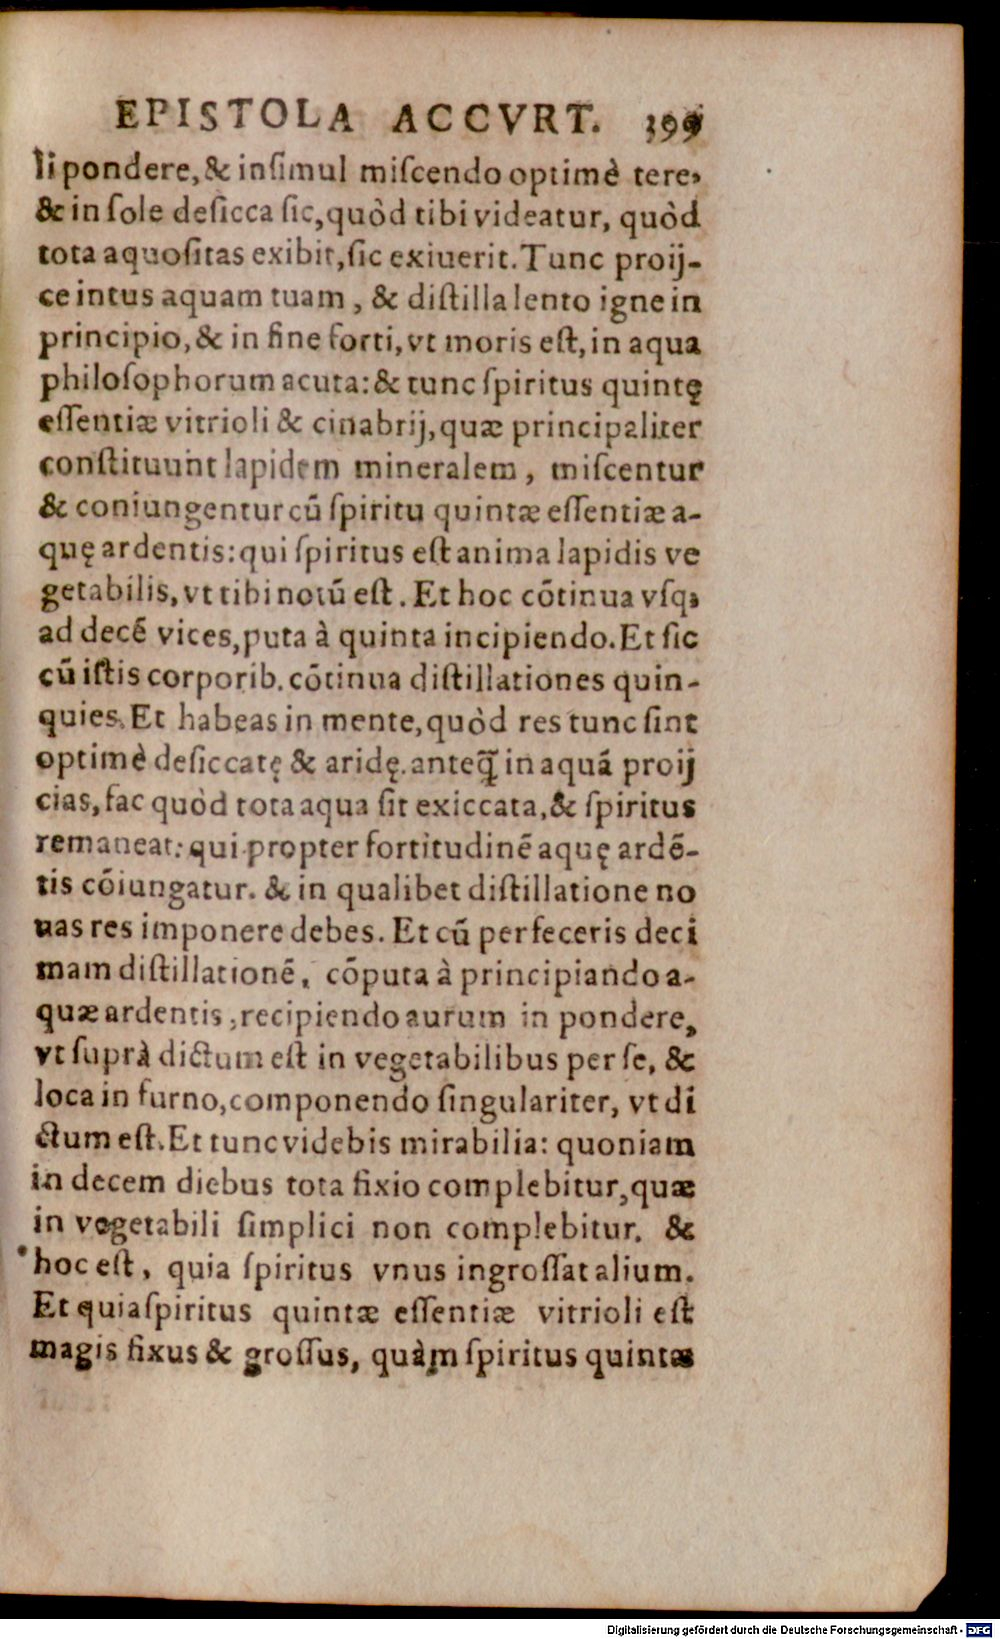 EPISTOLA ACCVRT. 399
li pondere, & insimul miscendo optimè tere,
& in sole desicca sic, quòd tibi videatur, quòd
tota aquositas exibit, sic exiuerit. Tunc proij-
ce intus aquam tuam, & distilla lento igne in
principio, & in fine forti, vt moris est, in aqua
philosophorum acuta: & tunc spiritus quintę
essentiæ vitrioli & cinabrij, quæ principaliter
constituunt lapidem mineralem, miscentur
& coniungentur cū spiritu quintæ essentiæ a-
quę ardentis: qui spiritus est anima lapidis ve
getabilis, vt tibi notū est. Et hoc cōtinua vsq;
ad decē vices, puta à quinta incipiendo. Et sic
cū istis corporib. cōtinua distillationes quin-
quies. Et habeas in mente, quòd res tunc sint
optimè desiccatę & aridę. anteq̃ in aquā proij
cias, fac quòd tota aqua sit exiccata, & spiritus
remaneat: qui propter fortitudinē aquę ardē-
tis cōiungatur. & in qualibet distillatione no
uas res imponere debes. Et cū perfeceris deci
mam distillationē, cōputa à principiando a-
quæ ardentis, recipiendo aurum in pondere,
vt suprà dictum est in vegetabilibus per se, &
loca in furno, componendo singulariter, vt di
ctum est. Et tunc videbis mirabilia: quoniam
in decem diebus tota fixio complebitur, quæ
in vegetabili simplici non complebitur. &
hoc est, quia spiritus vnus ingrossat alium.
Et quia spiritus quintæ essentiæ vitrioli est
magis fixus & grossus, quàm spiritus quintæ
Digitalisierung gefördert durch die Deutsche Forschungsgemeinschaft - DFG